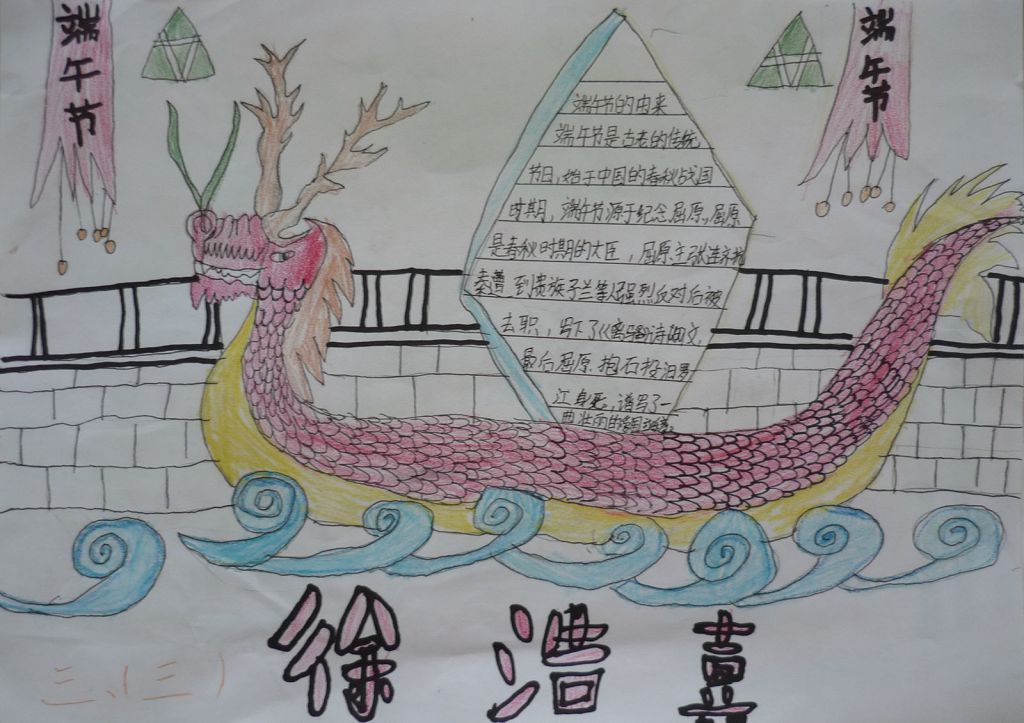 端午节
端午节
端午节的由来
端午节是古老的传统
节日，始于中国的春秋战国
时期，端午节源于纪念屈原，屈原
是春秋时期的大臣，屈原主张进齐抗
秦遭到贵族子兰等人强烈反对后被
去职，写下了《离骚》诗篇文，
最后屈原抱石投汨罗
江身死，谱写了一
曲壮丽的
徐浩
三、（三）